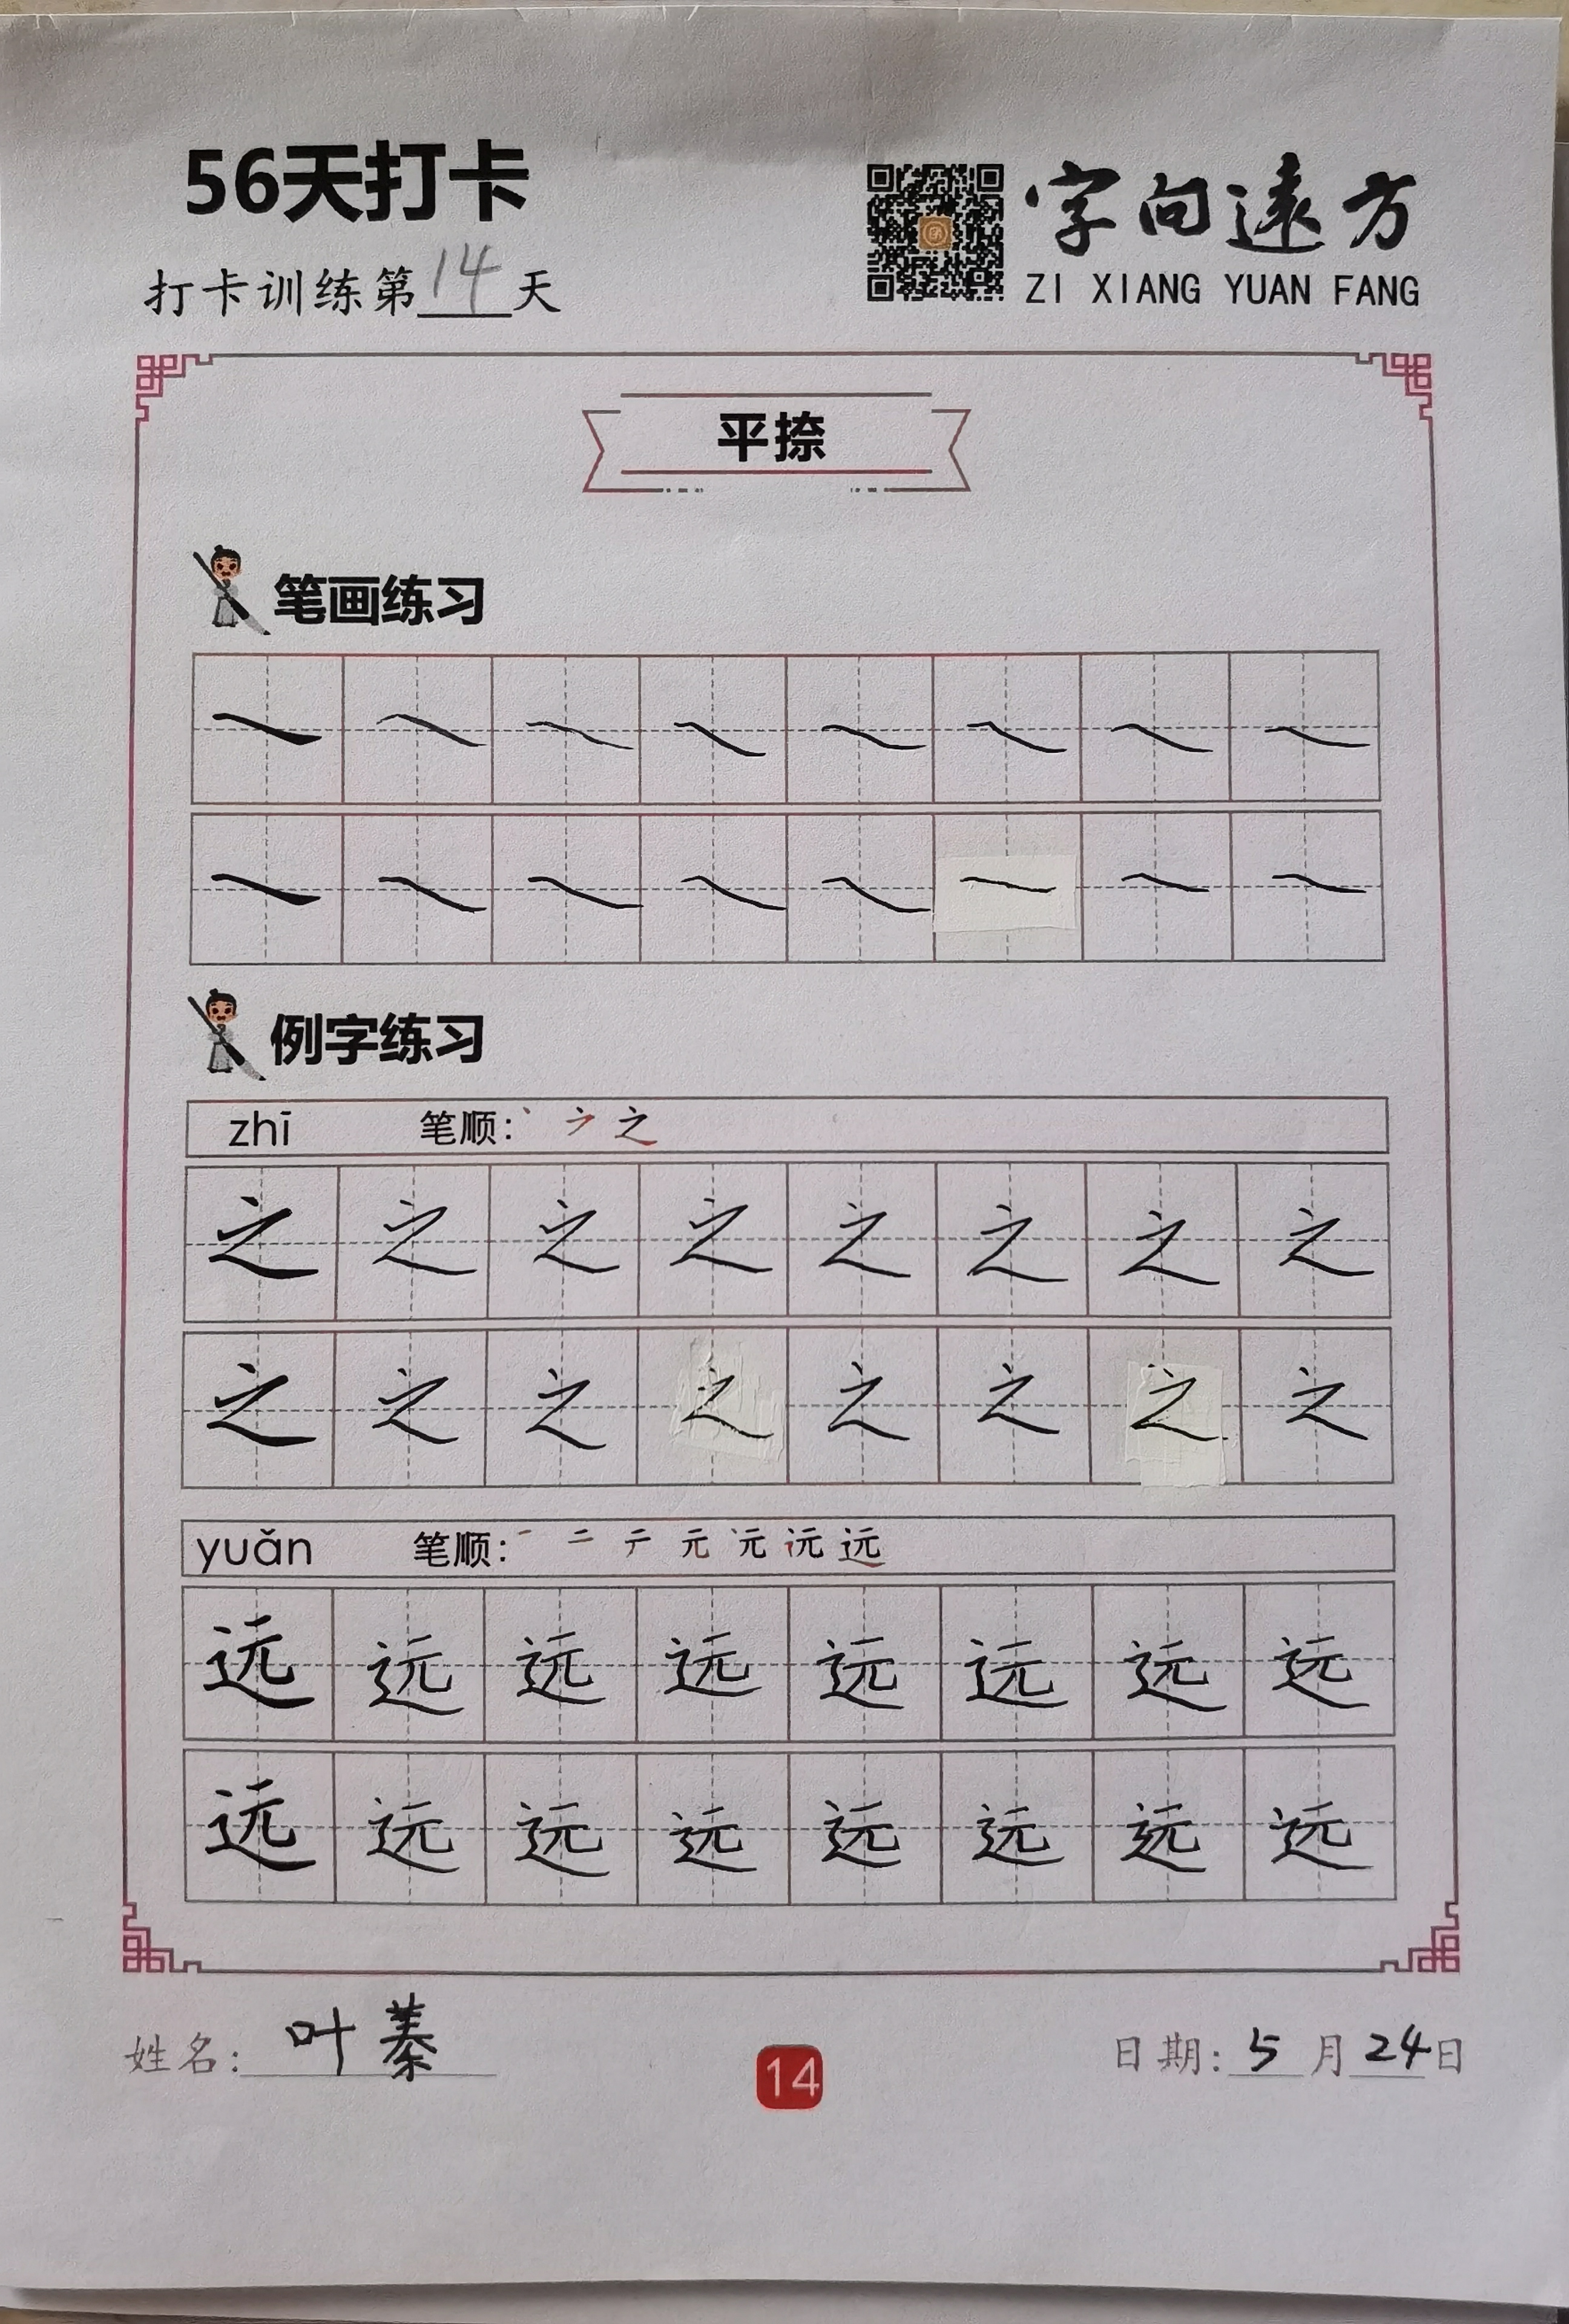 56天打卡
字向遠方
打卡训练第14天
ZI XIANG YUAN FANG
平捺
笔画练习
例字练习
zhī 笔顺: 丶 ㇇ 之
之 之 之 之 之 之 之 之
之 之 之 之 之 之 之 之
yuǎn 笔顺: 一 二 テ 元 元 远 远
远 远 远 远 远 远 远 远
远 远 远 远 远 远 远 远
姓名: 叶蓁
日期: 5月24日
14